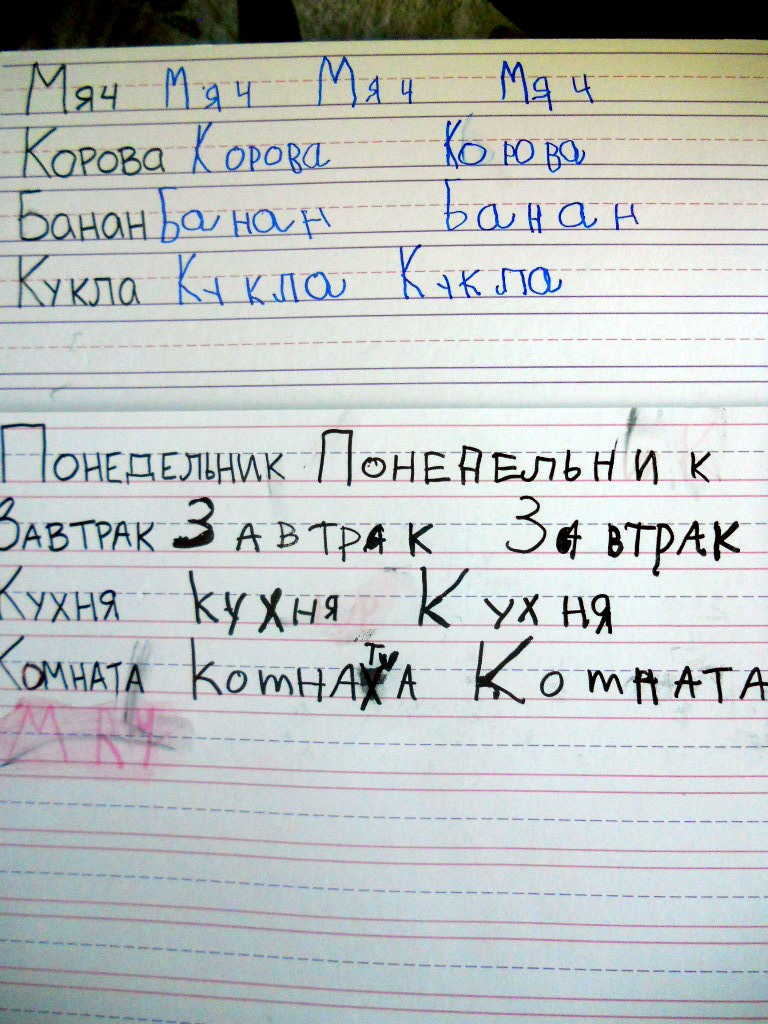 Мяч Мяч Мяч Мяч
Корова Корова Корова
Банан Банан Банан
Кукла Кукла Кукла
Понедельник Понедельник
Завтрак Завтрак Завтрак
Кухня Кухня Кухня
Комната комната Комната